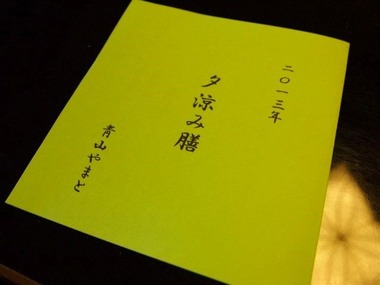 二〇一三年
夕涼み膳
青山やまと